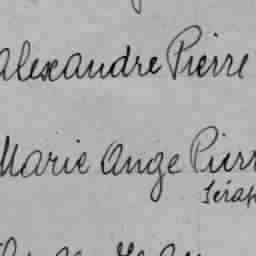 Alexandre Pierre
Marie Ange Pierr
Sérap